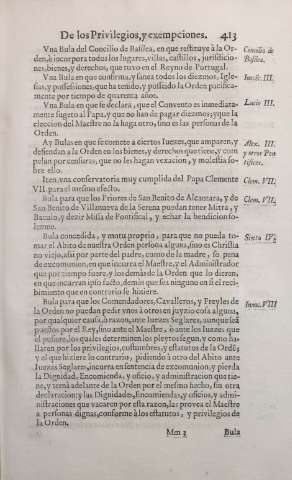 De los Priuilegios, y exempciones. 413
Vna Bula del Concilio de Basilea, en que restituye à la Or-
den, è incorpora todos los lugares, villas, castillos, jurisdicio-
nes, bienes, y derechos, que tuvo en el Reyno de Portugal.
Concilio de
Basilea.
Vna Bula en que confirma, y sanea todos los diezmos, Igle-
sias, y possessiones, que ha tenido, y posseido la Orden pacifica-
mente por tiempo de quarenta años.
Innoc. III.
Vna Bula en que se declara, que el Convento es inmediata-
mente sugeto al Papa, y que no han de pagar diezmos; y que la
eleccion del Maestro no la haga otro, sino es las personas de la
Orden.
Lucio III.
Ay Bulas en que se comete a ciertos Iuezes, que amparen, y
defiendan à la Orden en los bienes, y derechos que tiene, y com
pelan por censuras, que no les hagan vexacion, y molestia so-
bre ello.
Alex. III.
y otros Pon
tifices.
Iten, vna conservatoria muy cumplida del Papa Clemente
VII. para el mismo efecto.
Clem. VII.
Bula para que los Priores de San Benito de Alcantara, y de
San Benito de Villanueva de la Serena puedan tener Mitra, y
Baculo, y dezir Missa de Pontifical, y echar la bendicion so-
lemne.
Clem. VII.
Bula concedida, y motu proprio, para que no pueda to-
mar el Abito de nuestra Orden persona alguna, sino es Christia
no viejo, assi por parte del padre, como de la madre, so pena
de excomunion, en que incurra el Maestro, y el Administrador
que por tiempo fuere, y los demàs de la Orden que lo dieren,
en que incurran ipso facto, demàs que sea ninguno en si el reci-
bimiento que en contrario se hiziere.
Sixto IV.
Bula para que los Comendadores, Cavalleros, y Freyles de
la Orden no puedan pedir vnos à otros en juyzio cosa alguna,
por qualquier causa, ò razon, ante Iuezes Seglares, aunque seã
puestos por el Rey, sino ante el Maestro, ò ante los Iuezes que
el pusiere, los quales determinen los pleytos segun, y como ha-
llaren por los privilegios, costumbres, y estatutos de la Ordẽ;
y el que hiziere lo contrario, pidiendo à otro del Abito ante
Iuezes Seglares, incurra en sentencia de excomunion, y pierda
la Dignidad, Encomienda, y oficio, y administracion que tie-
ne, y tenia adelante de la Orden por el mesmo hecho, sin otra
declaracion; y las Dignidades, Encomiendas, y oficios, y admi-
nistraciones que vacaren por esta razon, las provea el Maestro
a personas dignas, conforme à los estatutos, y privilegios de
la Orden.
Innoc. VIII
Mm 3 Bula